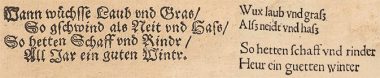 Wann wüchsse Laub vnd Gras/
So gschwind als Neit vnd Hass/
So hetten Schaff vnd Rindr/
All Jar ein guten Wintr.
Wux laub vnd graß
Alß neidt vnd haß
So hetten schaff vnd rinder
Heur ein guetten winter